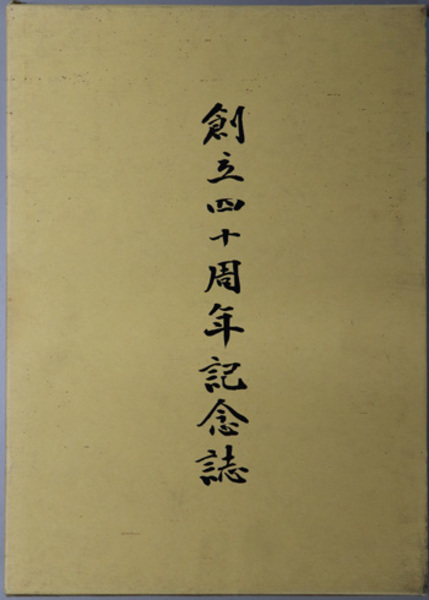 創立四十周年記念誌